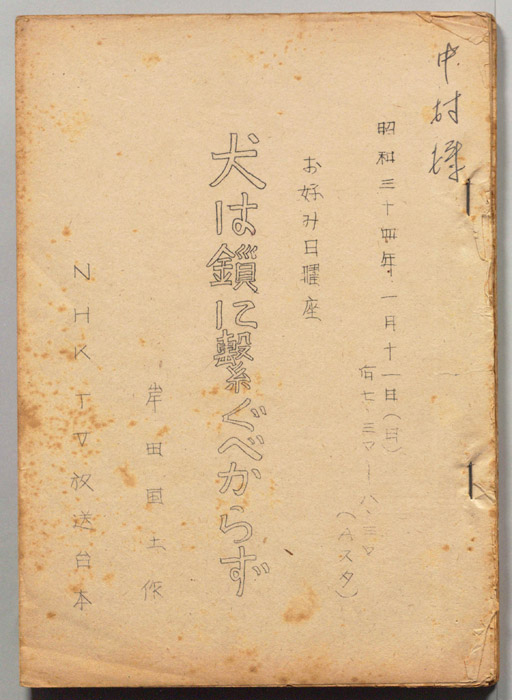 中村様
昭和三十四年一月十一日(日)
后七、三〇~八、三〇
(Aスタ)
お好み日曜座
犬は鎖に繋ぐべからず
岸田国士作
NHKTV放送台本